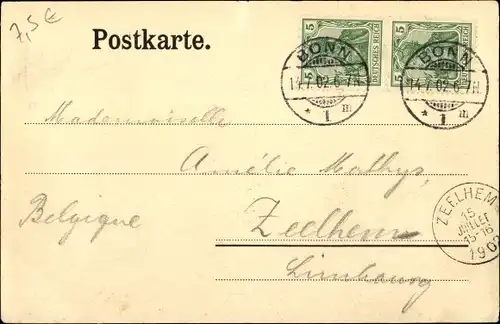 7,5€
Postkarte.
5 DEUTSCHES REICH 5
5 DEUTSCHES REICH 5
BONN
14.7.02.6-7N.
* 1 m
BONN
14.7.02.6-7N.
* 1 m
Mademoiselle
Amélie Mathys,
Belgique
Zeelhem
Limbourg
ZEELHEM
15
JUILLET
15-16
190